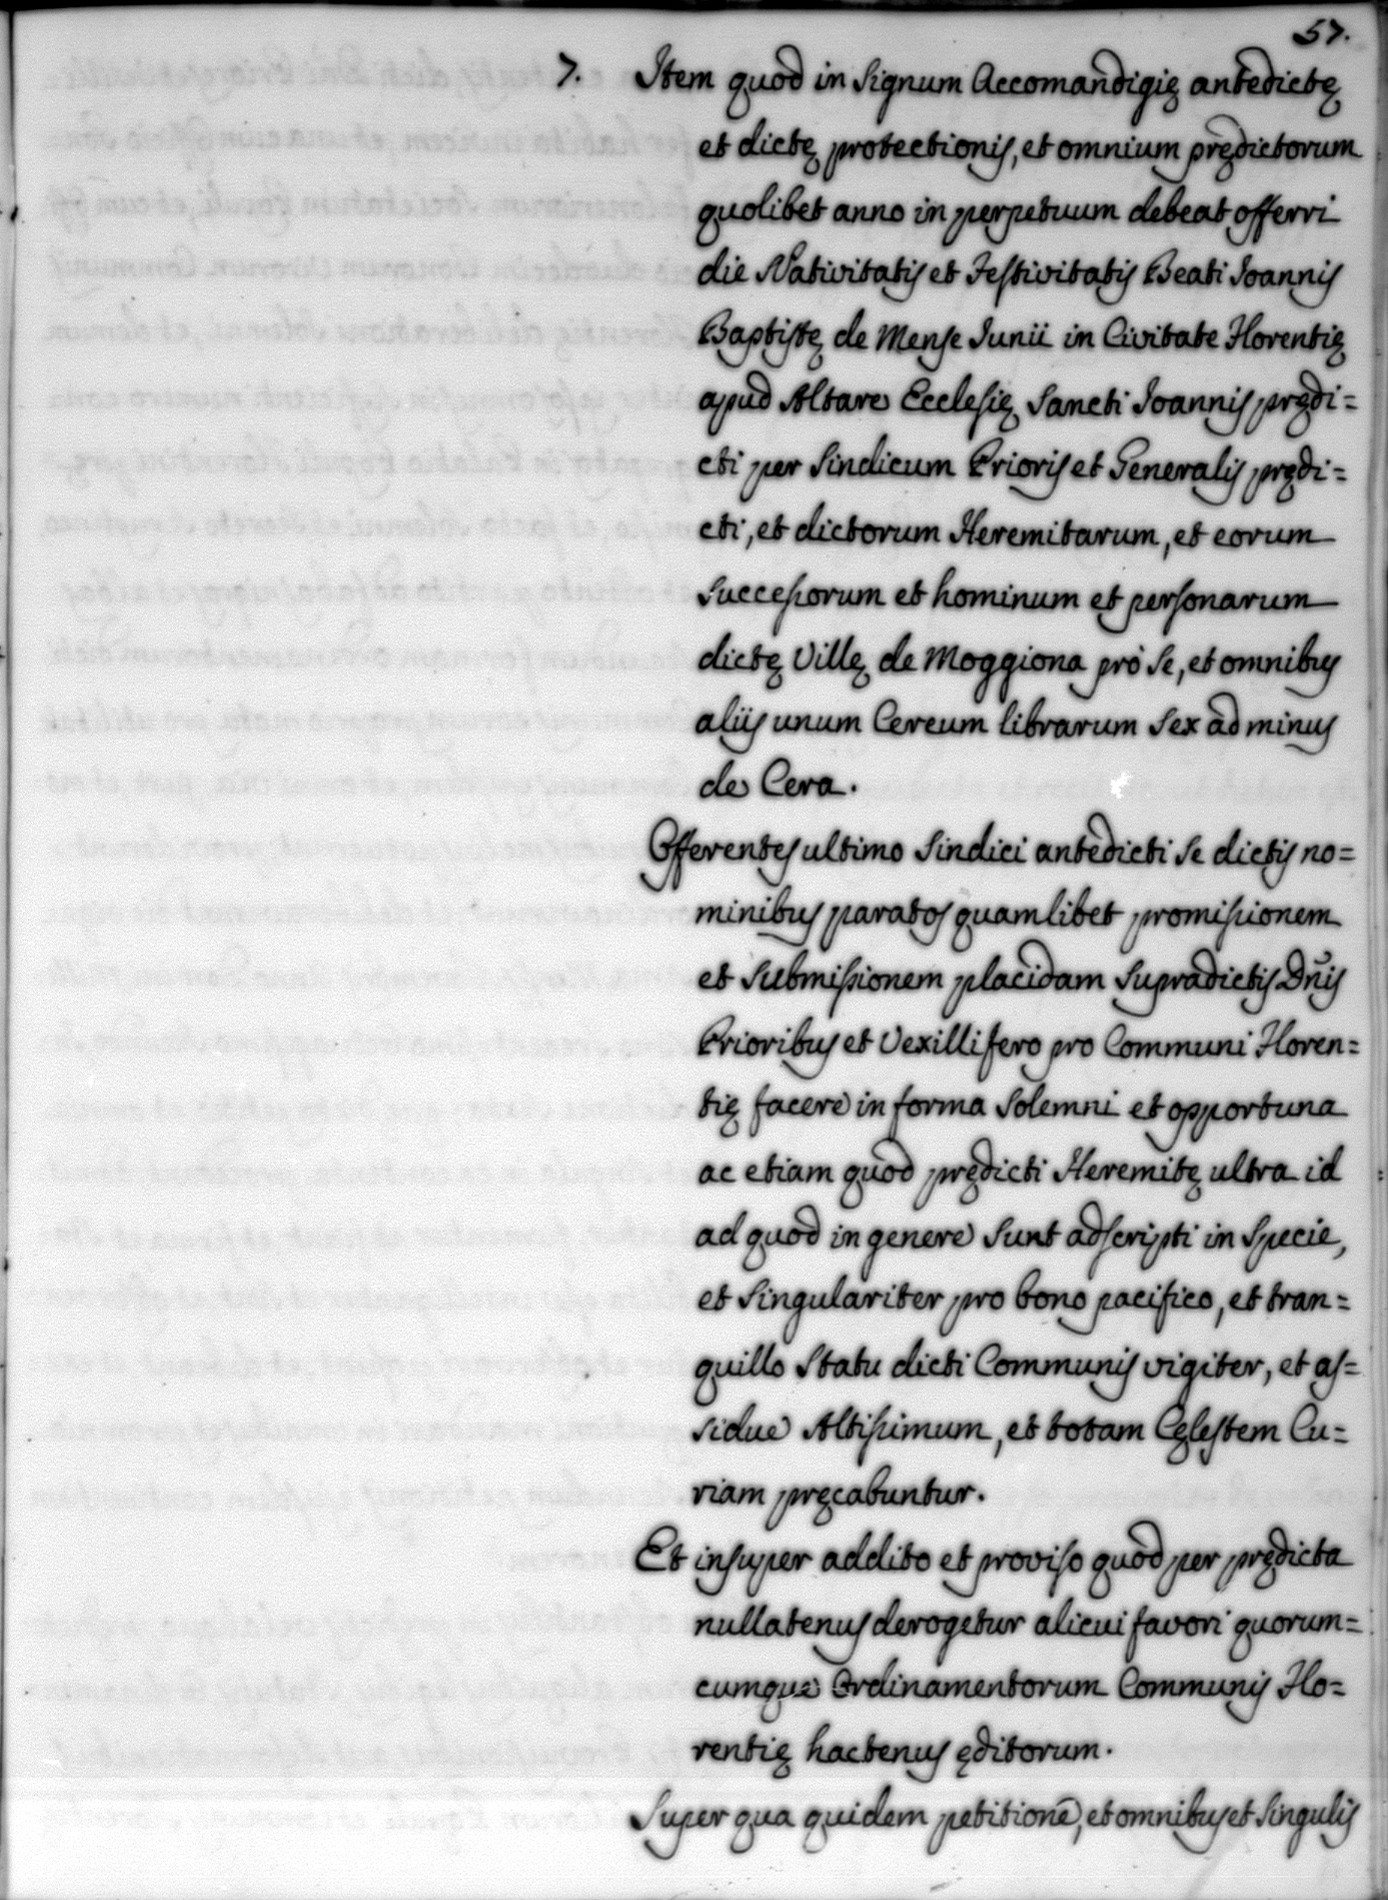 57.
7. Item quod in signum Accomandigię antedictę
et dictę protectionis, et omnium prędictorum
quolibet anno in perpetuum debeat offerri
die Nativitatis et Festivitatis Beati Ioannis
Baptistę de Mense Iunii in Civitate Florentię
apud Altare Ecclesię Sancti Ioannis prędi=
cti per Sindicum Prioris et Generalis prędi=
cti, et dictorum Heremitarum, et eorum
successorum et hominum et personarum
dictę Villę de Moggiona prò se, et omnibus
aliis unum Cereum librarum sex ad minus
de Cera.
Offerentes ultimo Sindici antedicti se dictis no=
minibus paratos quamlibet promissionem
et submissionem placidam supradictis Dñis
Prioribus et Vexillifero pro Communi Floren=
tię facere in forma solemni et opportuna
ac etiam quod prędicti Heremitę ultra id
ad quod in genere sunt adscripti in specie,
et singulariter pro bono pacifico, et tran=
quillo statu dicti Communis vigiter, et as=
sidue Altissimum, et totam Cęlestem Cu=
riam pręcabuntur.
Et insuper addito et proviso quod per prędicta
nullatenus derogetur alicui favori quorum=
cumque Ordinamentorum Communis Flo=
rentię hactenus ęditorum.
Super qua quidem petitione, et omnibus et singulis